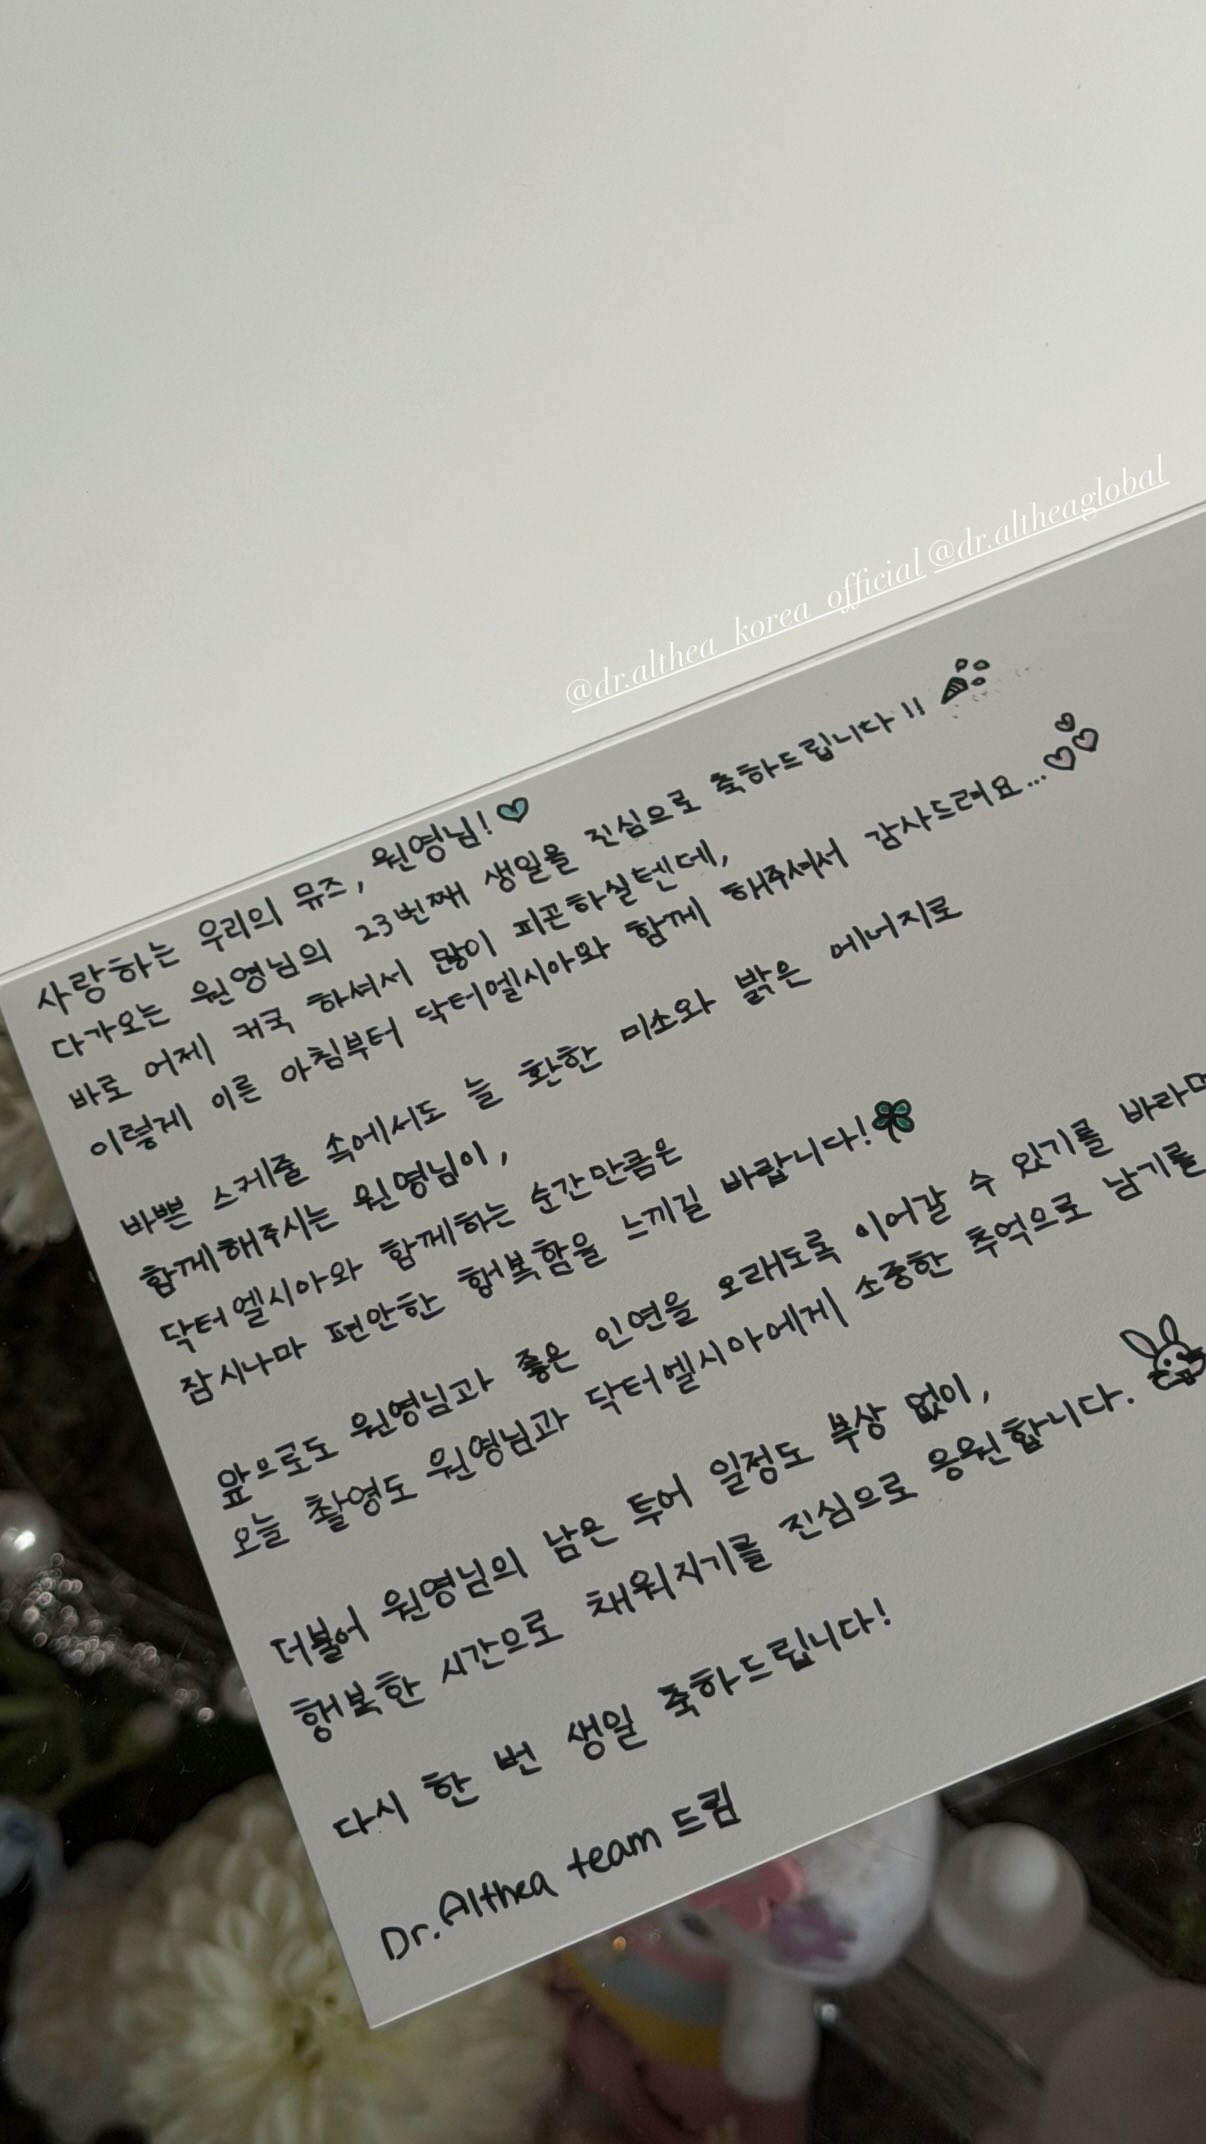 @dr.althea_korea_official @dr.altheaglobal
사랑하는 우리의 뮤즈, 원영님!
다가오는 원영님의 23번째 생일을 진심으로 축하드립니다!!
바로 어제 귀국 하셔서 많이 피곤하실텐데,
이렇게 이른 아침부터 닥터엘시아와 함께 해주셔서 감사드려요...
바쁜 스케줄 속에서도 늘 환한 미소와 밝은 에너지로
함께해주시는 원영님이,
닥터엘시아와 함께하는 순간만큼은
잠시나마 편안한 행복함을 느끼길 바랍니다!
앞으로도 원영님과 좋은 인연을 오래도록 이어갈 수 있기를
오늘 촬영도 원영님과 닥터엘시아에게 소중한 추억으로 남기를
더불어 원영님의 남은 투어 일정도 부상 없이,
행복한 시간으로 채워지기를 진심으로 응원합니다.
다시 한 번 생일 축하드립니다!
Dr.Althea team 드림